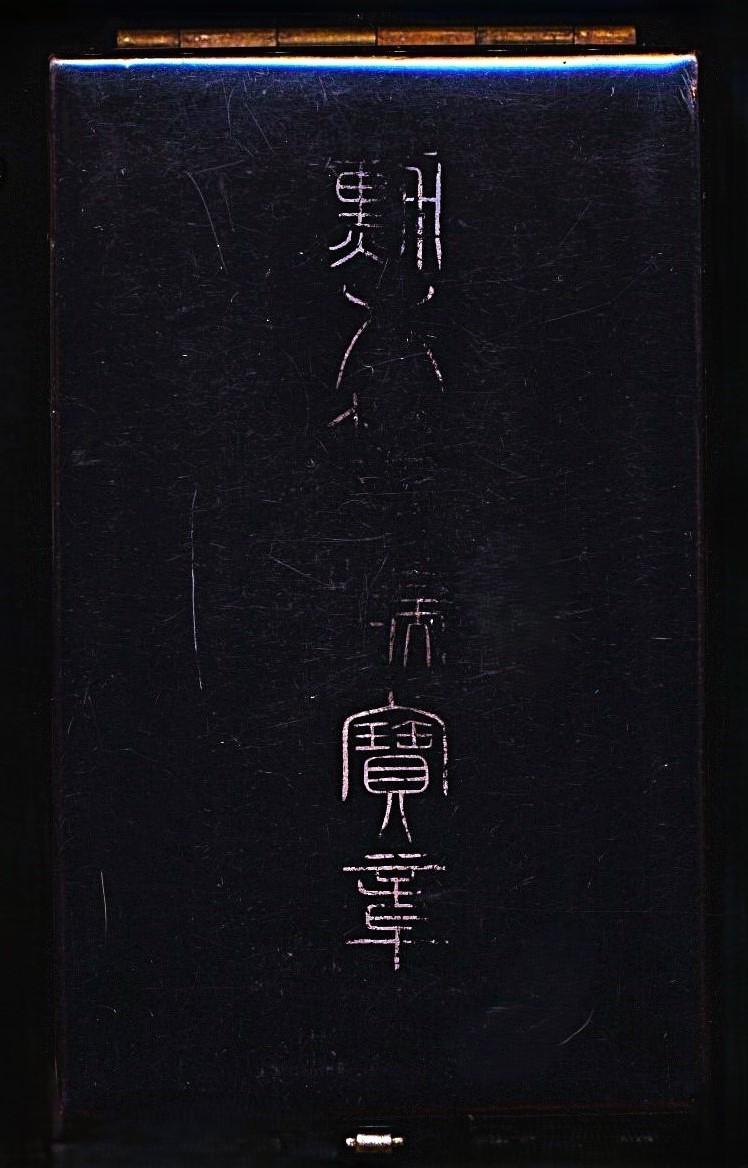 勳八等瑞寶章